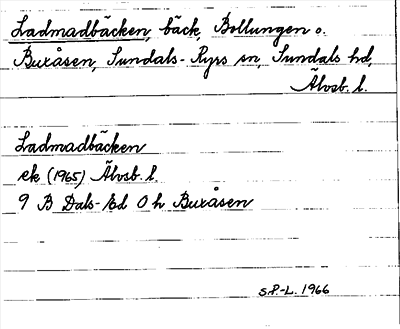 Ladmadbäcken, bäck, Bollungen o.
Buxåsen, Sundals-Ryrs sn, Sundals hd,
Älvsb. l.
Ladmadbäcken
ek (1965) Älvsb. l.
9 B Dals-Ed O h Buxåsen
S.P.-L. 1966